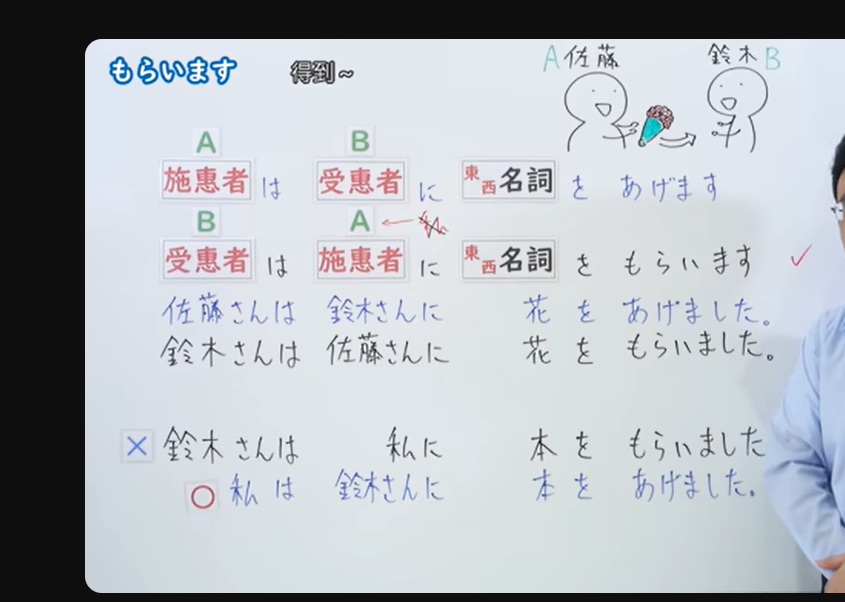 もらいます 得到~
A佐藤 鈴木B
A B
施惠者は 受惠者に 東西名詞を あげます
B A
受惠者は 施惠者に 東西名詞を もらいます
佐藤さんは 鈴木さんに 花を あげました。
鈴木さんは 佐藤さんに 花を もらいました。
鈴木さんは 私に 本を もらいました
私は 鈴木さんに 本を あげました。